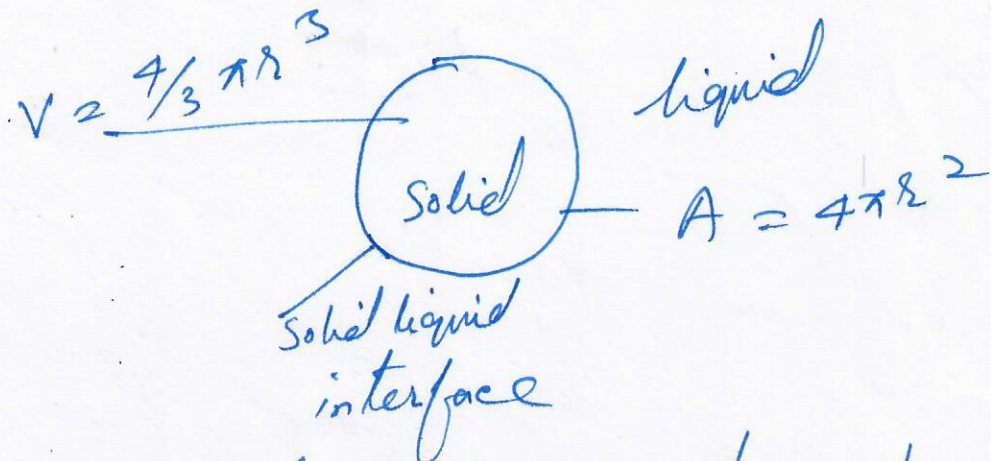 V = 4/3 πr³
liquid
solid
A = 4πr²
solid liquid
interface